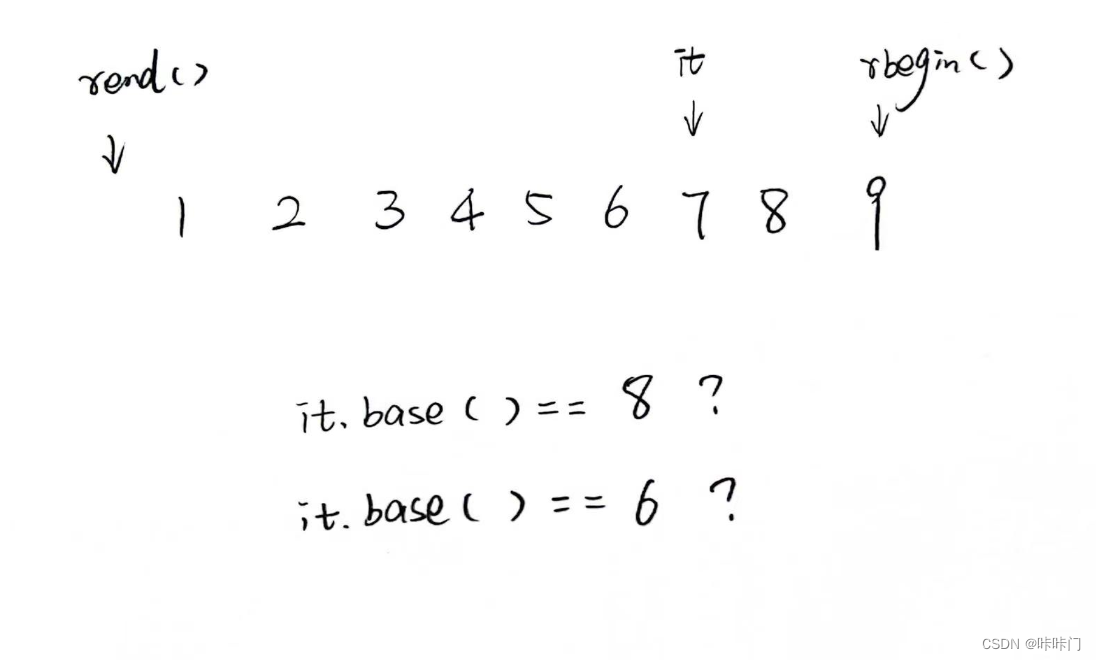 rend() it rbegin()
↓ ↓ ↓
1 2 3 4 5 6 7 8 9
it.base() == 8 ?
it.base() == 6 ?
CSDN @咔咔门